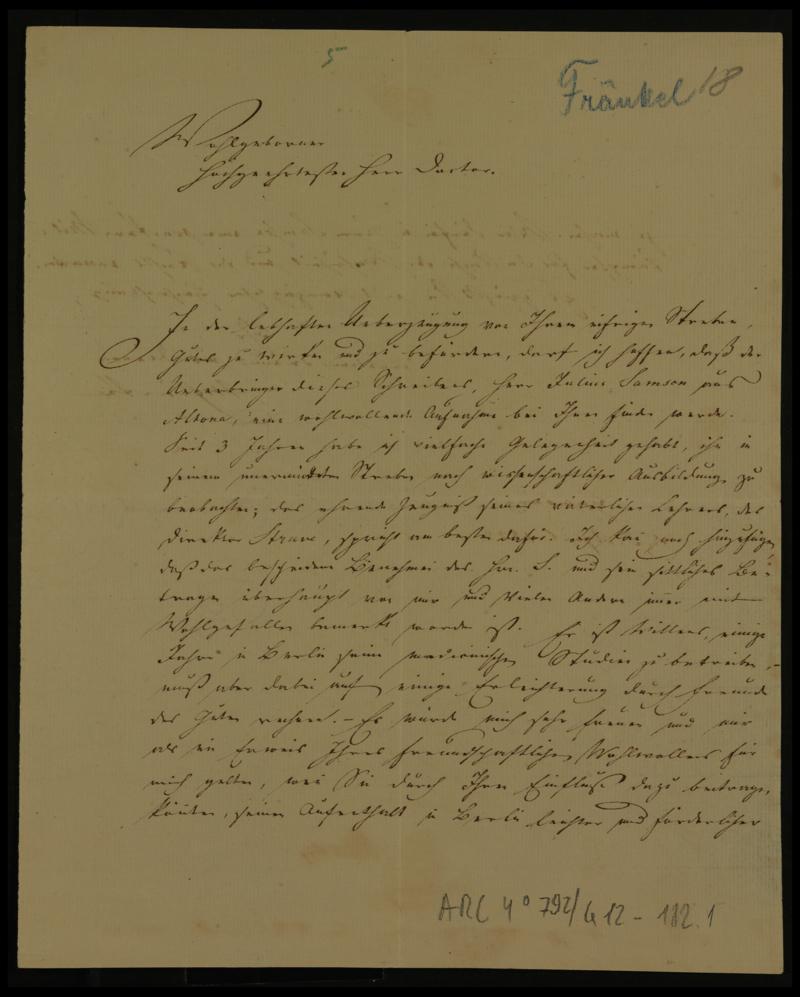 5
Fränkel 18
Wohlgeborner
Hochgeehrtester Herr Doctor.
In der lebhaften Ueberzeugung von Ihrem eifrigen Streben,
Gutes zu wirken und zu befördern, darf ich hoffen, daß der
Ueberbringer dieses Schreibens, Herr Julius Samson aus
Altona, eine wohlwollende Aufnahme bei Ihnen finden werde.
Seit 3 Jahren habe ich vielfache Gelegenheit gehabt, ihn in
seinem unermüdeten Streben nach wissenschaftlicher Ausbildung zu
beobachten; das ehrende Zeugniß seines väterlichen Lehrers, des
Direktor Struve, spricht am besten dafür. Ich kan noch hinzufügen
daß das bescheidene Benehmen des Hrn. S. und sein sittliches Be-
tragen überhaupt von mir und vielen Andern immer mit
Wohlgefallen bemerkt worden ist. Er ist Willens, einige
Jahre in Berlin seine medicinischen Studien zu betreiben,
muß aber dabei auf einige Erleichterung durch Freunde
des Guten rechnen. – Es würde mich sehr freuen und mir
als ein Beweis Ihres freundschaftlichen Wohlwollens für
mich gelten, wen Sie durch Ihren Einfluß dazu beitragen
könten, seinen Aufenthalt in Berlin leichter und förderlicher
ARC 4° 792/G12 - 112.1